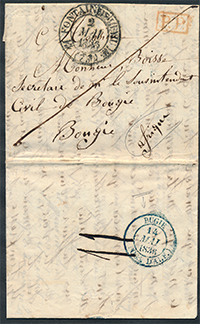 FONTAINEBLEAU
2
MAI
1836
P.P.
Monsieur Boisse
Secrétaire de Mr le Sousintendant
Civil de Bougie
Bougie
Afrique
BUGIE
14
MAI
1836